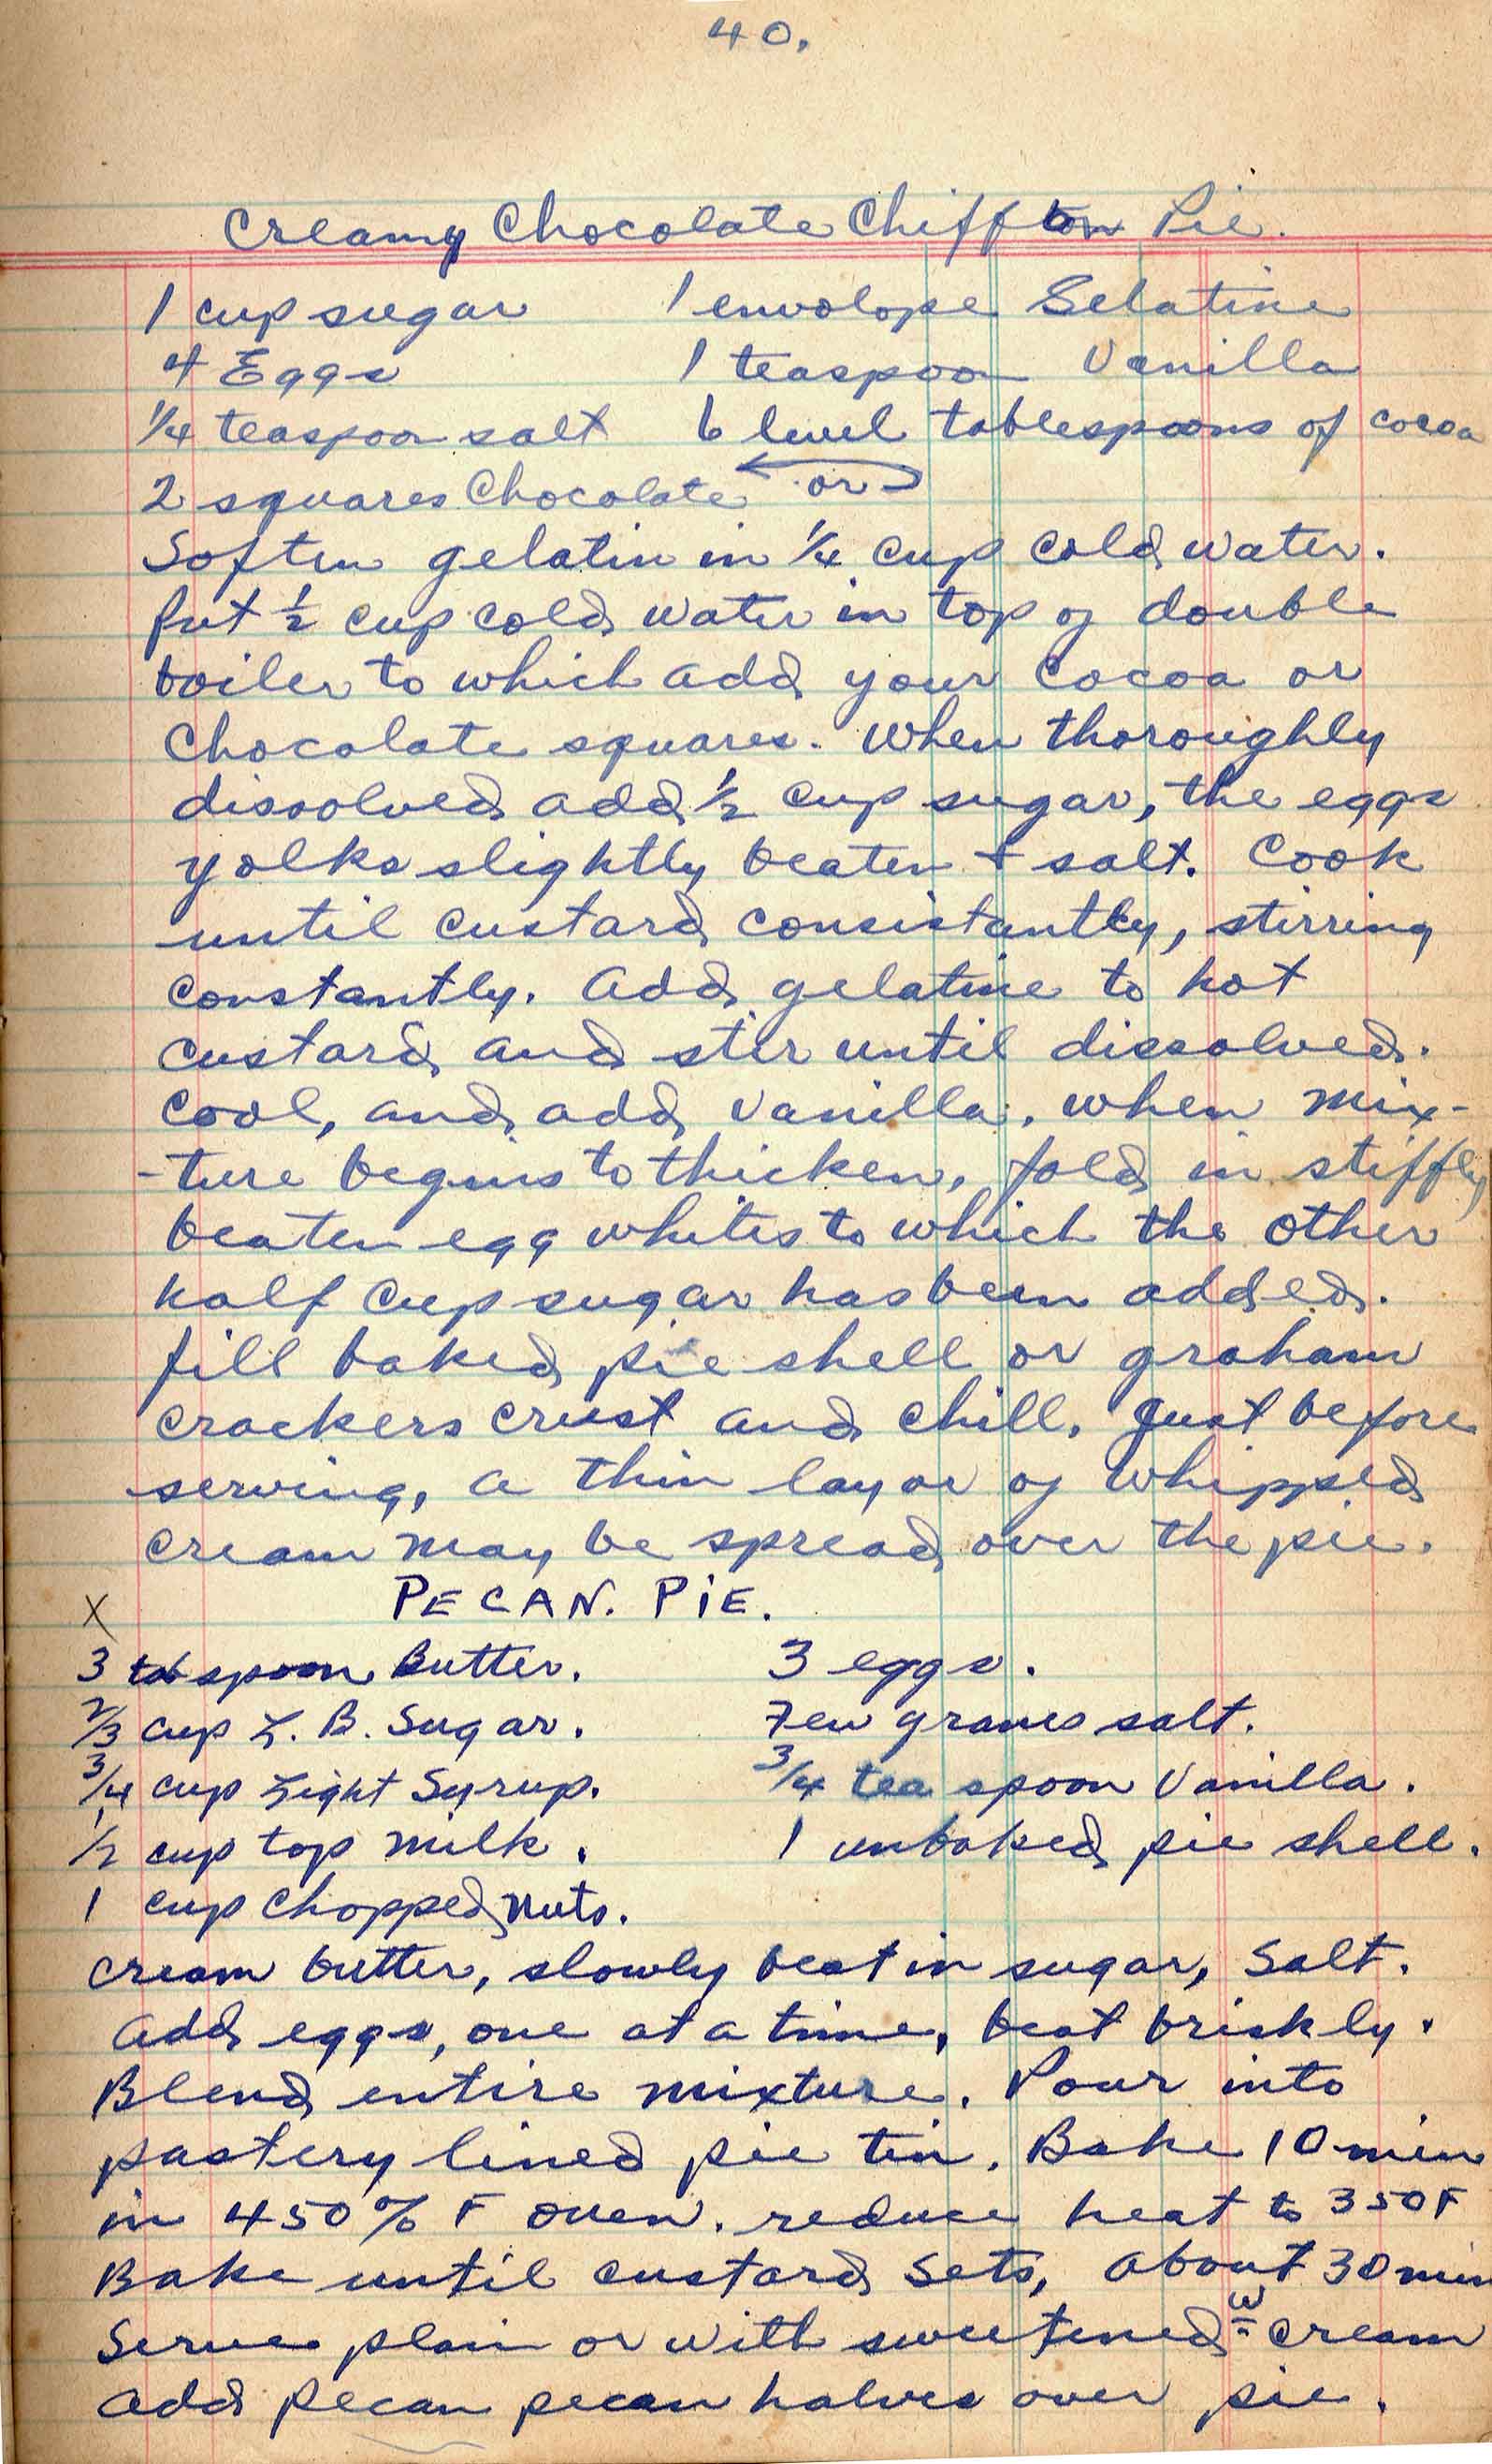 40.
Creamy Chocolate Chiffton Pie.
1 cup sugar 1 envolope Gelatine
4 Eggs 1 teaspoon Vanilla
1/4 teaspoon salt 6 level tablespoons of cocoa
2 squares Chocolate or
Soften gelatin in 1/4 cup cold water.
Put 1/2 cup cold water in top of double
boiler to which add your cocoa or
Chocolate squares. When thoroughly
dissolved add 1/2 cup sugar, the eggs
yolks slightly beaten + salt. Cook
until custard consistantly, stirring
constantly. add gelatine to hot
custard and stir until dissolved.
Cool, and add vanilla. when mix-
-ture begins to thicken, fold in stiffly
beaten egg whites to which the other
half cup sugar has been added.
fill baked pie shell or graham
crackers crust and chill. Just before
serving, a thin layor of whipped
cream may be spread over the pie.
X PECAN. PiE.
3 tabspoon Butter. 3 eggs.
2/3 cup L. B. Sugar. Few granes salt.
3/4 cup Light Syrup. 3/4 tea spoon Vanilla.
1/2 cup top milk. 1 unbaked pie shell.
1 cup chopped nuts.
cream butter, slowly beat in sugar, Salt.
add eggs, one at a time, beat briskly.
Blend entire mixture. Pour into
pastery lined pie tin. Bake 10 min
in 450% F oven. reduce heat to 350F
Bake until custard sets, about 30 min
Serve plain or with sweetened w cream
add pecan pecan halves over pie.